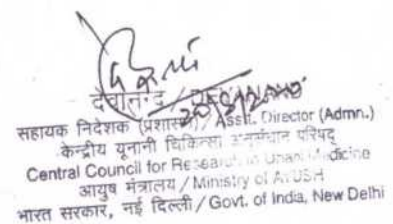 देवानन्द / DEVANAND
सहायक निदेशक (प्रशासन) / Asstt. Director (Admn.)
केन्द्रीय यूनानी चिकित्सा अनुसंधान परिषद्
Central Council for Research in Unani Medicine
आयुष मंत्रालय / Ministry of AYUSH
भारत सरकार, नई दिल्ली / Govt. of India, New Delhi